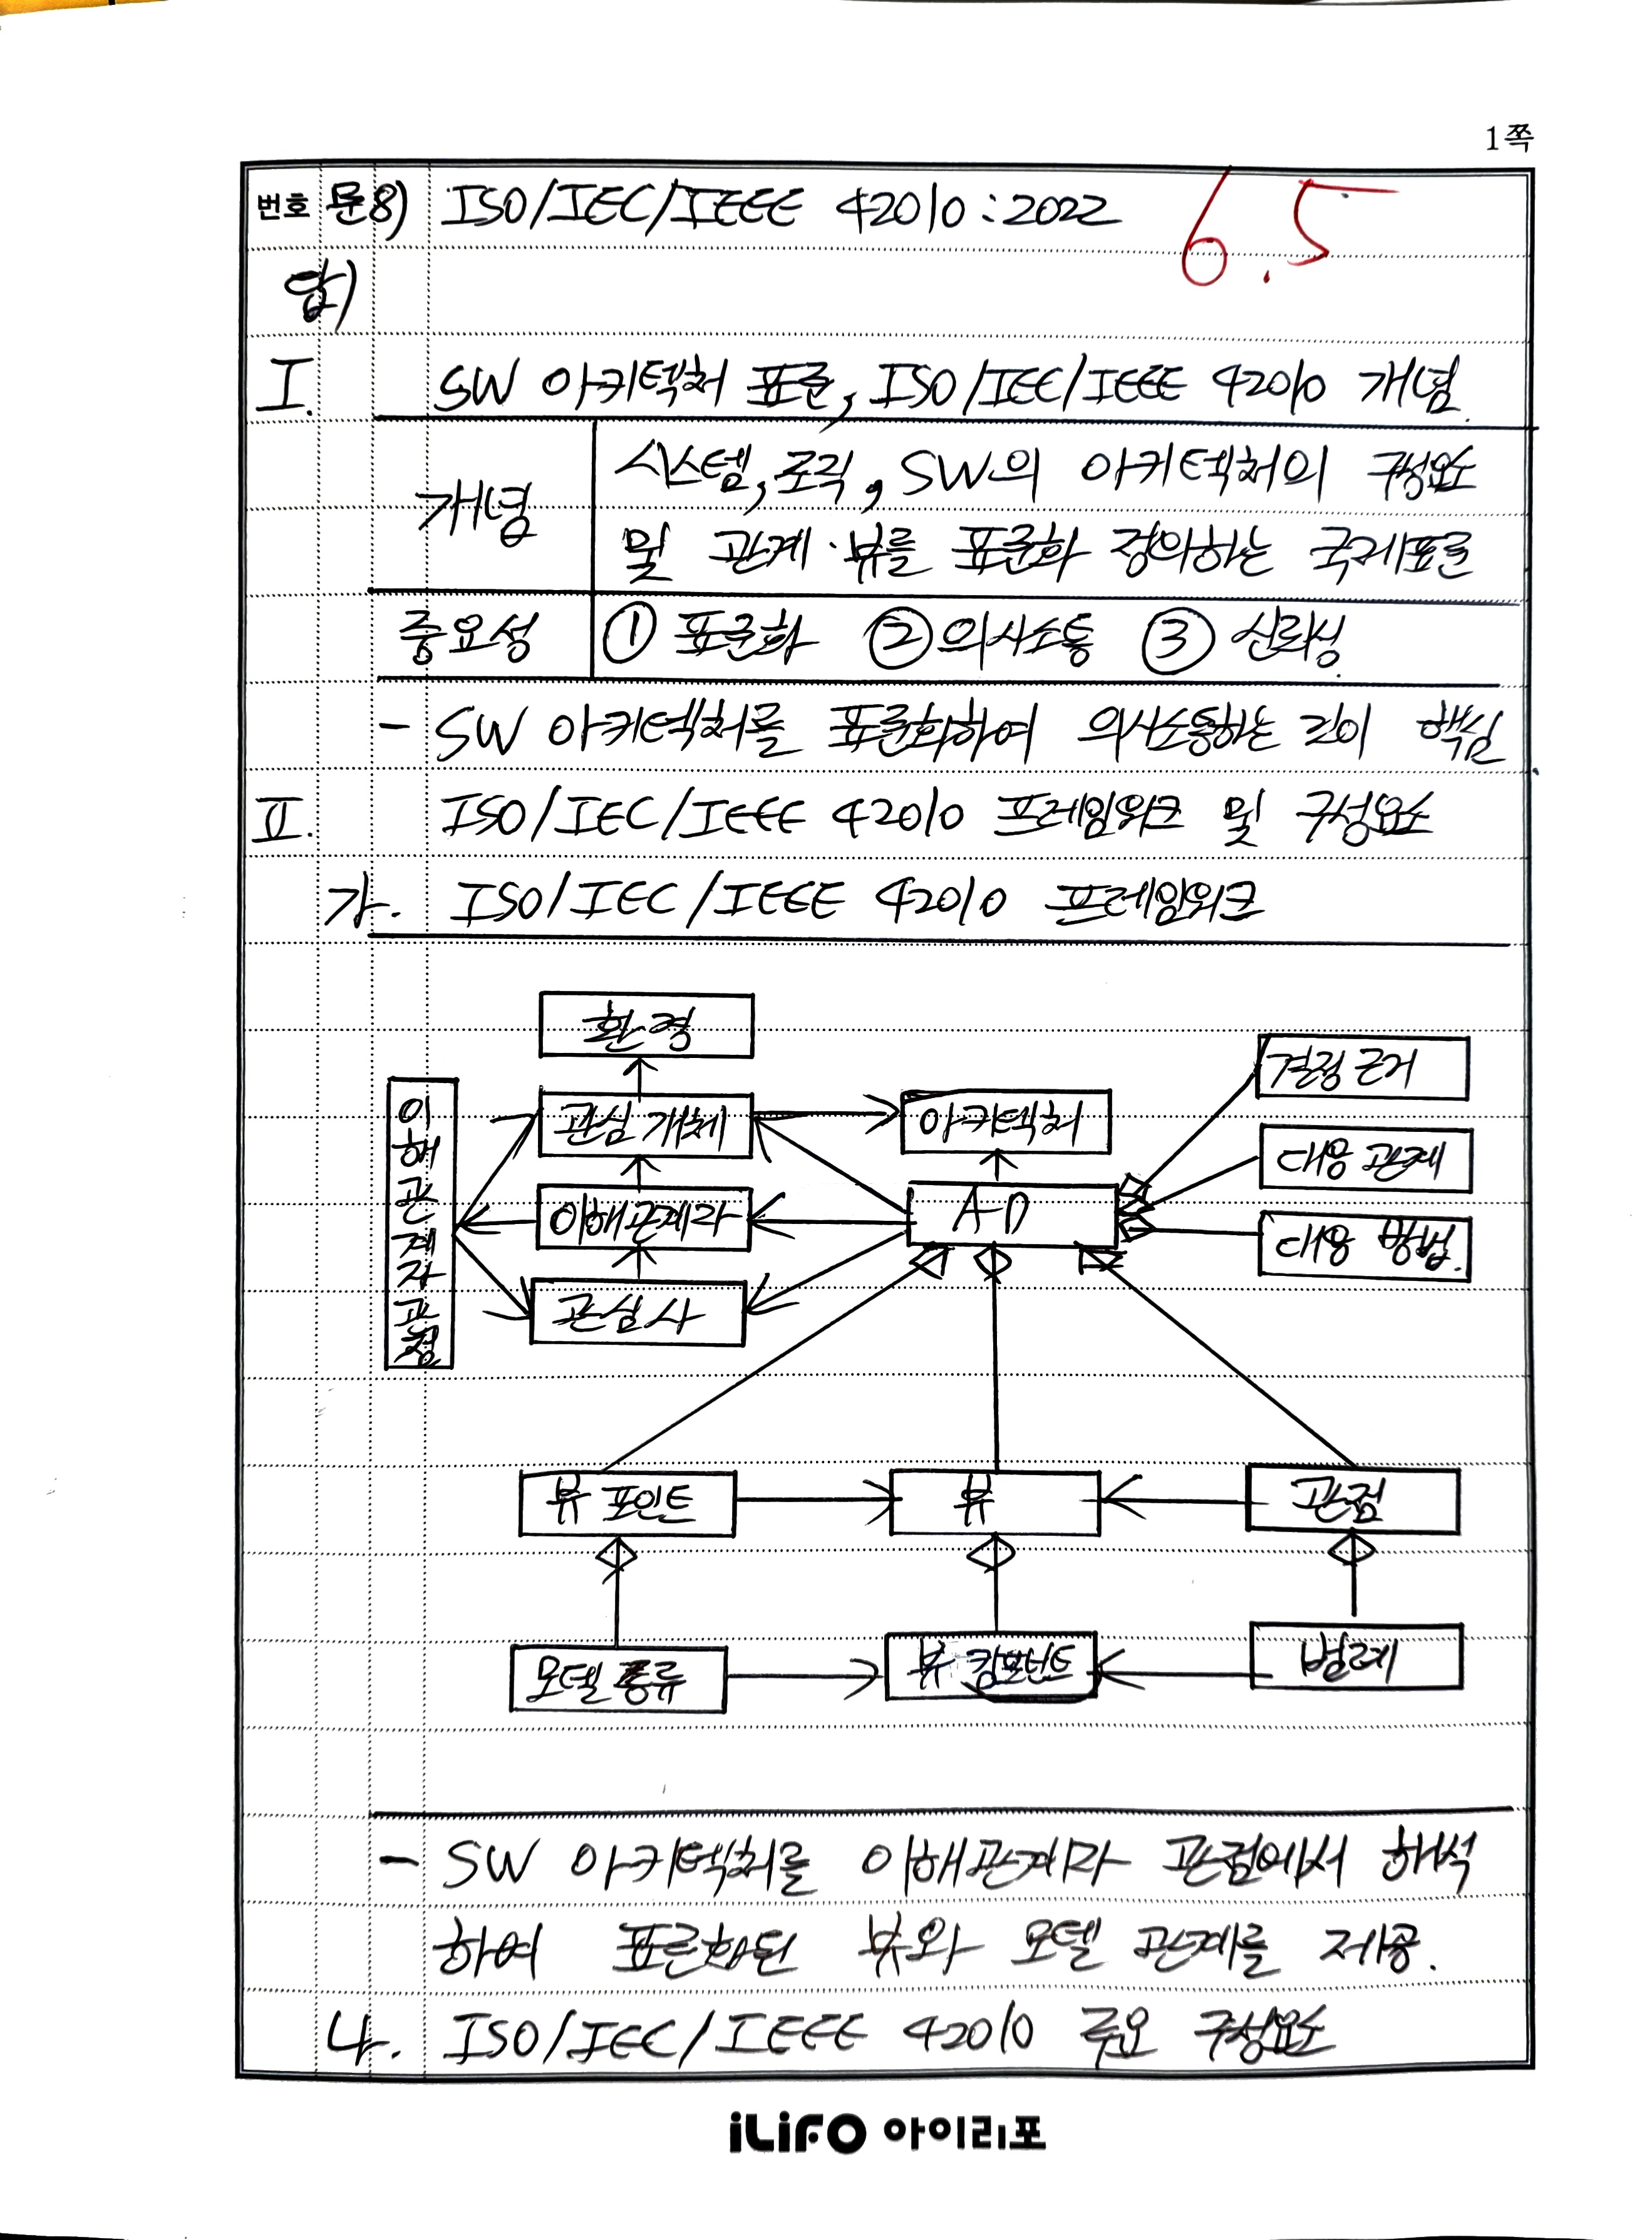 1쪽
번호 문8) ISO/IEC/IEEE 42010:2022
6.5
답)
I. SW 아키텍처 표준, ISO/IEC/IEEE 42010 개념
개념
시스템, 로직, SW의 아키텍처의 구성요소
및 관계·뷰를 표준화 정의하는 국제표준
중요성 ① 표준화 ② 의사소통 ③ 신뢰성
- SW 아키텍처를 표준화하여 의사소통하는 것이 핵심
II. ISO/IEC/IEEE 42010 프레임워크 및 구성요소
가. ISO/IEC/IEEE 42010 프레임워크
환경
결정 근거
이해관계자관점
관심 개체
아키텍처
대응 관계
이해관계자
A-D
대응 방법.
관심사
뷰 포인트
뷰
관점
모델 종류
뷰 컴포넌트
범례
- SW 아키텍처를 이해관계자 관점에서 해석
하여 표준화된 뷰와 모델 관계를 제공.
나. ISO/IEC/IEEE 42010 주요 구성요소
iLiFO 아이리포